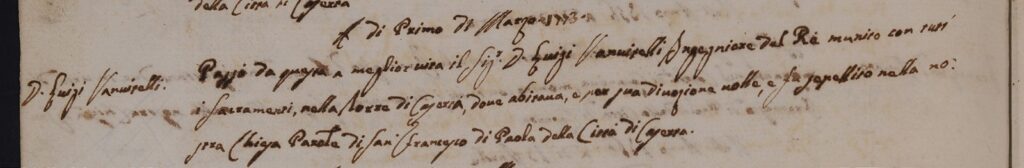 della Città di Caserta
A di Primo di Marzo 1773
D. Luigi Vanvitelli.
Passò da questa a meglior vita il Sig.r D. Luigi Vanvitelli Ingegniere del Rè munito con tutti
i Sacramenti, nella Torre di Caserta, dove abitava, e per sua divozione volle, e fù sepellito nella no:
stra Chiesa Par.le di San Francesco di Paola della Città di Caserta.